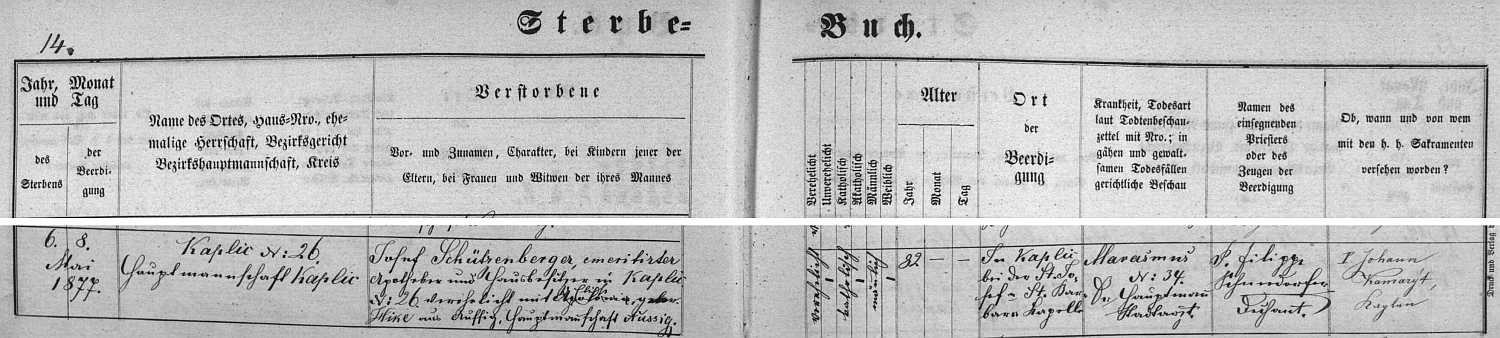 14.
Sterbe=
Buch.
Jahr, Monat
und Tag
des
Sterbens
der
Beerdi-
gung
Name des Ortes, Haus-Nro., ehe-
malige Herrschaft, Bezirksgericht
Bezirkshauptmannschaft, Kreis
Verstorbene
Vor- und Zunamen, Charakter, bei Kindern jener der
Eltern, bei Frauen und Witwen der ihres Mannes
Verehelicht
Unverehelicht
Katholisch
Akatholisch
Männlich
Weiblich
Alter
Jahr
Monat
Tag
Ort
der
Beerdi-
gung
Krankheit, Todesart
laut Todtenbeschau-
zettel mit Nro.; in
gähen und gewalt-
samen Todesfällen
gerichtliche Beschau
Namen des
einsegnenden
Priesters
oder des
Zeugen der
Beerdigung
Ob, wann und von wem
mit den h. h. Sakramenten
versehen worden?
Druck und Verlag
6. 8.
Mai
1877.
Kaplic N: 26,
Hauptmannschaft Kaplic
Josef Schützenberger emeritirter
Apotheker und Hausbesitzer in Kaplic
N: 26 verehelicht mit geb.
aus Aussig, Hauptmannschaft Aussig.
verehelicht
katholisch
männlich
82 — —
In Kaplic
bei der St. Jo-
sef= St. Bar-
bara Kapelle
Marasmus
N: 34.
Dr. Hauptmann
Stadtarzt.
P. Filipp
Dechant.
P. Johann
Kamarýt,
Kaplan